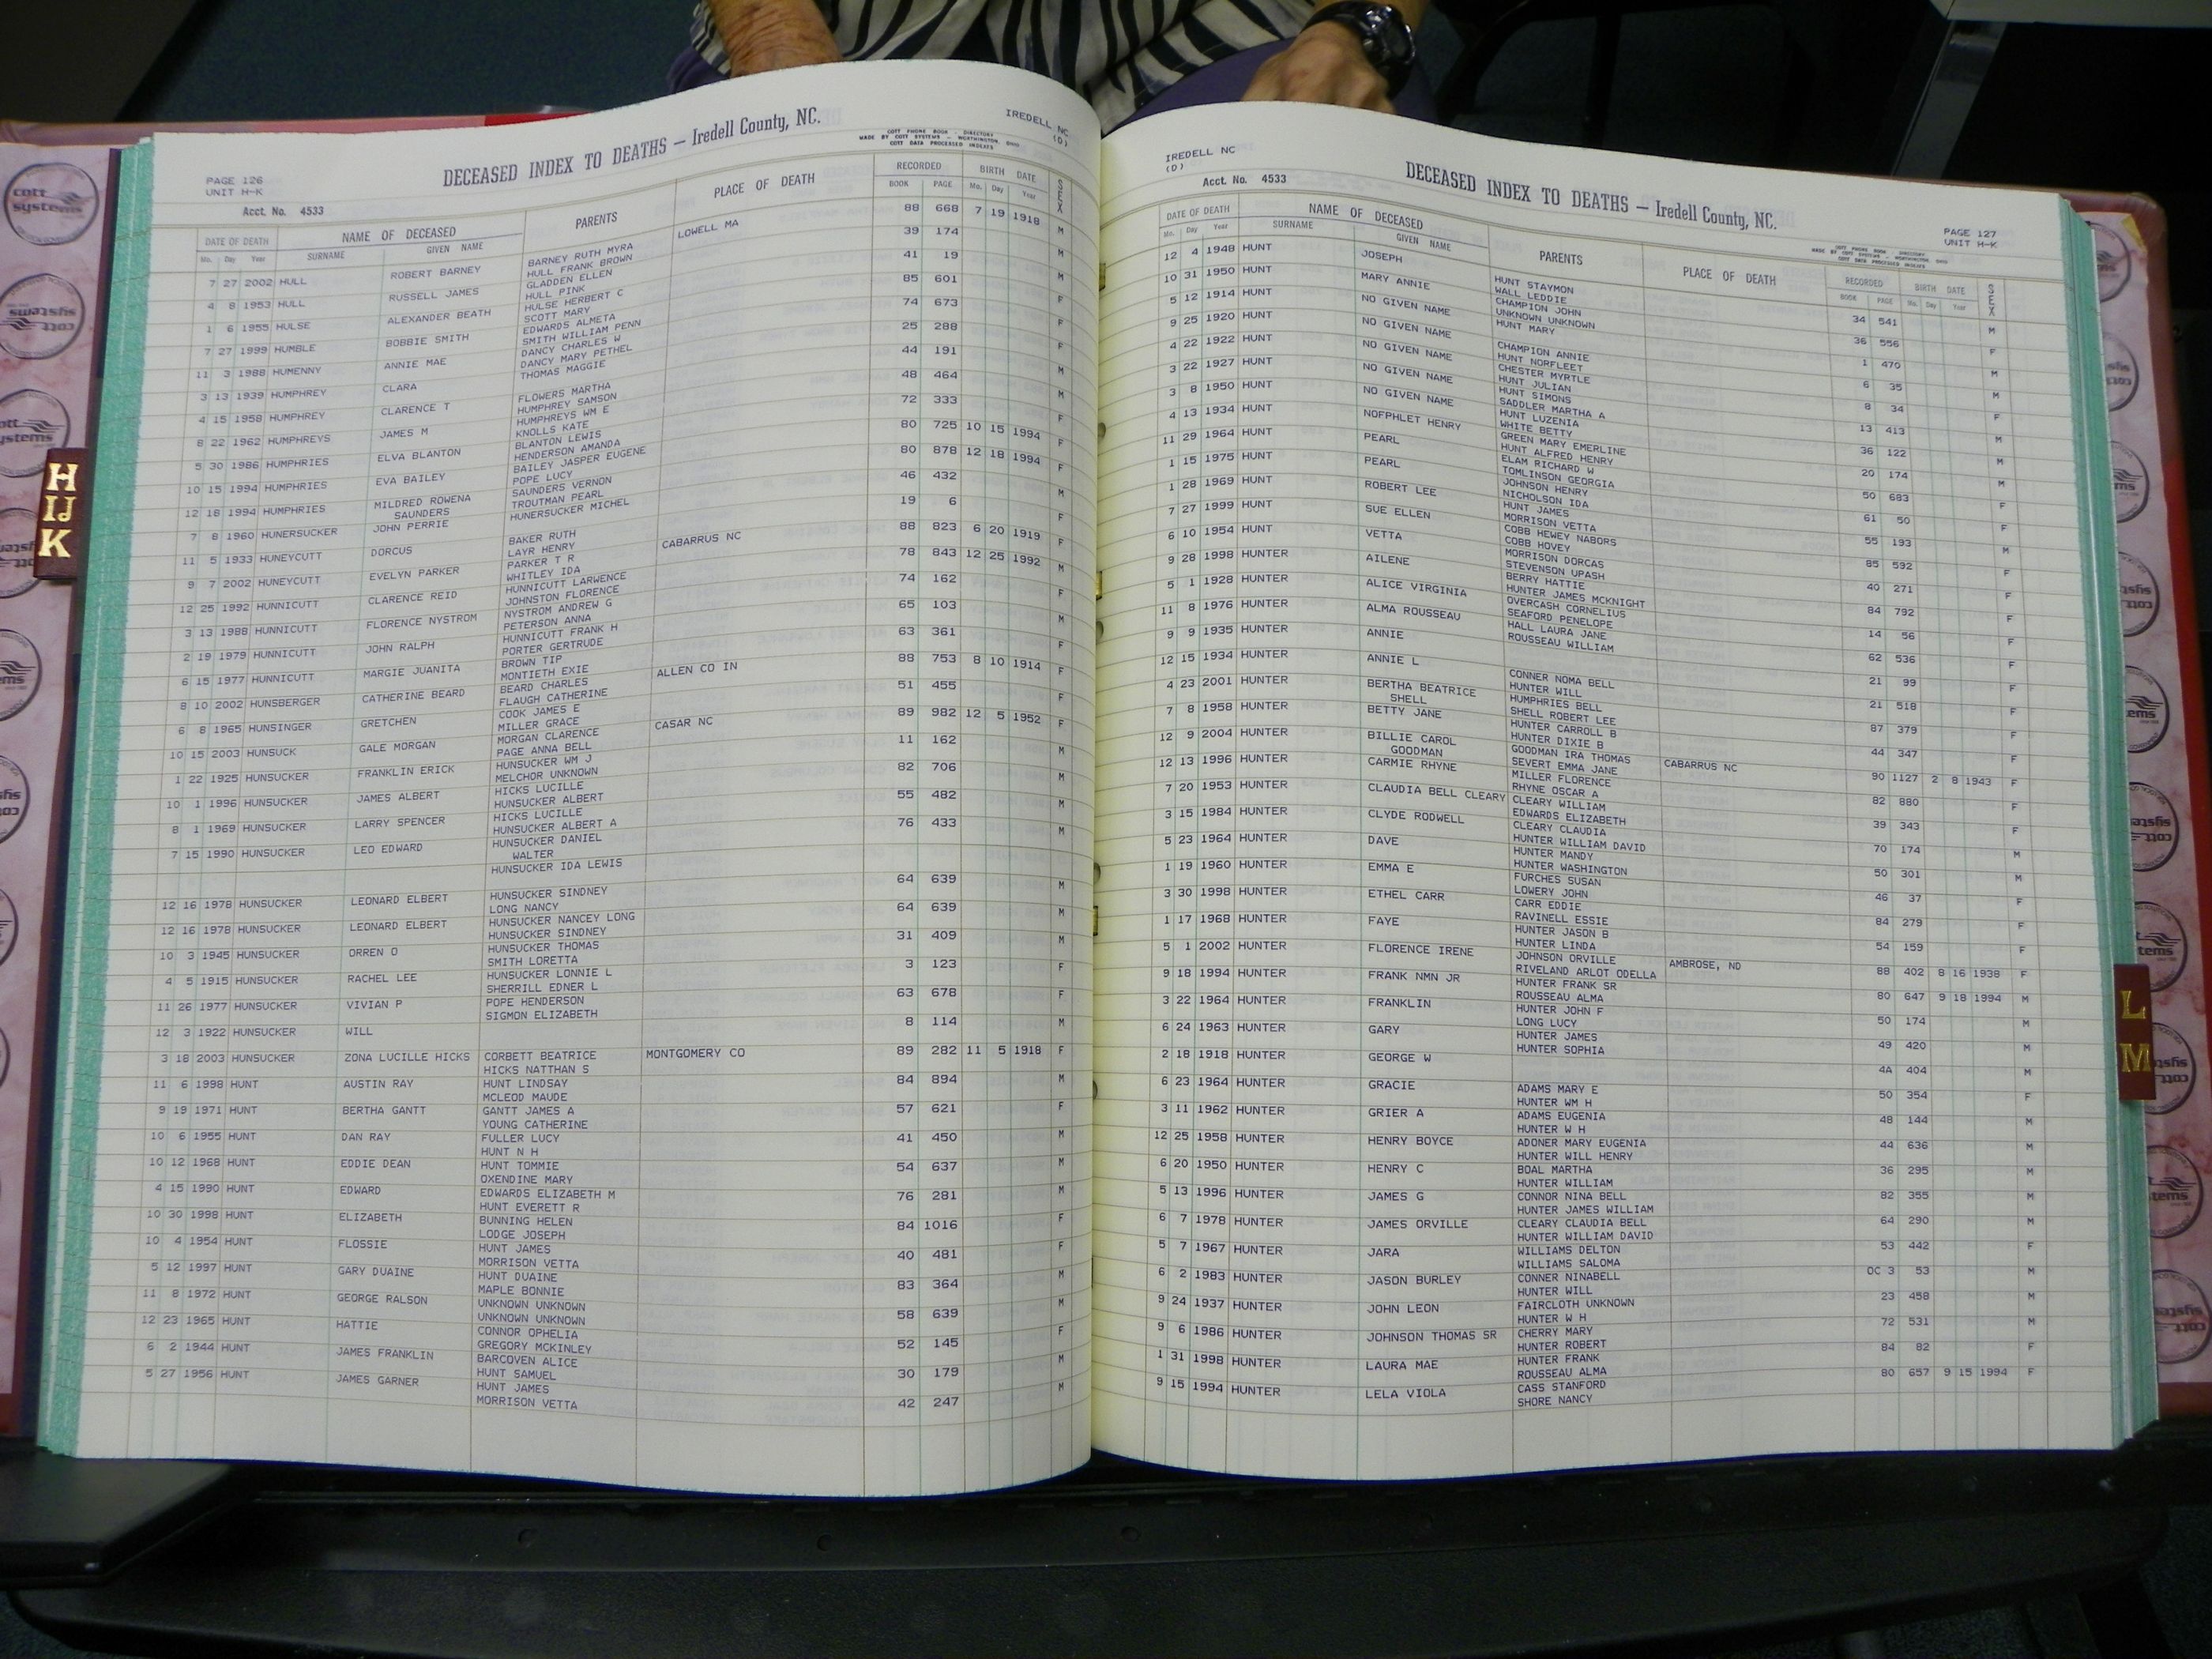 PAGE 126
UNIT H-K
Acct. No. 4533
DECEASED INDEX TO DEATHS — Iredell County, NC.
COTT PHONE BOOK - DIRECTORY
MADE BY COTT SYSTEMS - WORTHINGTON, OHIO
COTT DATA PROCESSED INDEXES
IREDELL NC
(D)
DATE OF DEATH NAME OF DECEASED PARENTS PLACE OF DEATH RECORDED BIRTH DATE SEX
Mo. Day Year SURNAME GIVEN NAME BOOK PAGE Mo. Day Year
7 27 2002 HULL ROBERT BARNEY BARNEY RUTH MYRA LOWELL MA 88 668 7 19 1918 M
HULL FRANK BROWN
4 8 1953 HULL RUSSELL JAMES GLADDEN ELLEN 39 174 M
HULL PINK
1 6 1955 HULSE ALEXANDER BEATH HULSE HERBERT C 41 19 M
SCOTT MARY
7 27 1999 HUMBLE BOBBIE SMITH EDWARDS ALMETA 85 601 F
SMITH WILLIAM PENN
11 3 1988 HUMENNY ANNIE MAE DANCY CHARLES W 74 673 F
DANCY MARY PETHEL
3 13 1939 HUMPHREY CLARA THOMAS MAGGIE 25 288 F
4 15 1958 HUMPHREY CLARENCE T FLOWERS MARTHA 44 191 M
HUMPHREY SAMSON
8 22 1962 HUMPHREYS JAMES M HUMPHREYS WM E 48 464 M
KNOLLS KATE
5 30 1986 HUMPHRIES ELVA BLANTON BLANTON LEWIS 72 333 F
HENDERSON AMANDA
10 15 1994 HUMPHRIES EVA BAILEY BAILEY JASPER EUGENE 80 725 10 15 1994 F
POPE LUCY
12 18 1994 HUMPHRIES MILDRED ROWENA SAUNDERS VERNON 80 878 12 18 1994 F
SAUNDERS TROUTMAN PEARL
7 8 1960 HUNERSUCKER JOHN PERRIE HUNERSUCKER MICHEL 46 432 M
11 5 1933 HUNEYCUTT DORCUS BAKER RUTH 19 6 F
LAYR HENRY
9 7 2002 HUNEYCUTT EVELYN PARKER PARKER T R CABARRUS NC 88 823 6 20 1919 F
WHITLEY IDA
12 25 1992 HUNNICUTT CLARENCE REID HUNNICUTT LARWENCE 78 843 12 25 1992 M
JOHNSTON FLORENCE
3 13 1988 HUNNICUTT FLORENCE NYSTROM NYSTROM ANDREW G 74 162 F
PETERSON ANNA
2 19 1979 HUNNICUTT JOHN RALPH HUNNICUTT FRANK H 65 103 M
PORTER GERTRUDE
6 15 1977 HUNNICUTT MARGIE JUANITA BROWN TIP 63 361 F
MONTIETH EXIE
8 10 2002 HUNSBERGER CATHERINE BEARD BEARD CHARLES ALLEN CO IN 88 753 8 10 1914 F
FLAUGH CATHERINE
6 8 1965 HUNSINGER GRETCHEN COOK JAMES E 51 455 F
MILLER GRACE
10 15 2003 HUNSUCK GALE MORGAN MORGAN CLARENCE CASAR NC 89 982 12 5 1952 F
PAGE ANNA BELL
1 22 1925 HUNSUCKER FRANKLIN ERICK HUNSUCKER WM J 11 162 M
MELCHOR UNKNOWN
10 1 1996 HUNSUCKER JAMES ALBERT HICKS LUCILLE 82 706 M
HUNSUCKER ALBERT
8 1 1969 HUNSUCKER LARRY SPENCER HICKS LUCILLE 55 482 M
HUNSUCKER ALBERT A
7 15 1990 HUNSUCKER LEO EDWARD HUNSUCKER DANIEL 76 433 M
WALTER
HUNSUCKER IDA LEWIS
12 16 1978 HUNSUCKER LEONARD ELBERT HUNSUCKER SINDNEY 64 639 M
LONG NANCY
12 16 1978 HUNSUCKER LEONARD ELBERT HUNSUCKER NANCEY LONG 64 639 M
HUNSUCKER SINDNEY
10 3 1945 HUNSUCKER ORREN O HUNSUCKER THOMAS 31 409 M
SMITH LORETTA
4 5 1915 HUNSUCKER RACHEL LEE HUNSUCKER LONNIE L 3 123 F
SHERRILL EDNER L
11 26 1977 HUNSUCKER VIVIAN P POPE HENDERSON 63 678 F
SIGMON ELIZABETH
12 3 1922 HUNSUCKER WILL 8 114 M
3 18 2003 HUNSUCKER ZONA LUCILLE HICKS CORBETT BEATRICE MONTGOMERY CO 89 282 11 5 1918 F
HICKS NATTHAN S
11 6 1998 HUNT AUSTIN RAY HUNT LINDSAY 84 894 M
MCLEOD MAUDE
9 19 1971 HUNT BERTHA GANTT GANTT JAMES A 57 621 F
YOUNG CATHERINE
10 6 1955 HUNT DAN RAY FULLER LUCY 41 450 M
HUNT N H
10 12 1968 HUNT EDDIE DEAN HUNT TOMMIE 54 637 M
OXENDINE MARY
4 15 1990 HUNT EDWARD EDWARDS ELIZABETH M 76 281 M
HUNT EVERETT R
10 30 1998 HUNT ELIZABETH BUNNING HELEN 84 1016 F
LODGE JOSEPH
10 4 1954 HUNT FLOSSIE HUNT JAMES 40 481 F
MORRISON VETTA
5 12 1997 HUNT GARY DUAINE HUNT DUAINE 83 364 M
MAPLE BONNIE
11 8 1972 HUNT GEORGE RALSON UNKNOWN UNKNOWN 58 639 M
UNKNOWN UNKNOWN
12 23 1965 HUNT HATTIE CONNOR OPHELIA 52 145 F
GREGORY MCKINLEY
6 2 1944 HUNT JAMES FRANKLIN BARCOVEN ALICE 30 179 M
HUNT SAMUEL
5 27 1956 HUNT JAMES GARNER HUNT JAMES 42 247 M
MORRISON VETTA
IREDELL NC
(D)
Acct. No. 4533
DECEASED INDEX TO DEATHS — Iredell County, NC.
COTT PHONE BOOK - DIRECTORY
MADE BY COTT SYSTEMS - WORTHINGTON, OHIO
COTT DATA PROCESSED INDEXES
PAGE 127
UNIT H-K
DATE OF DEATH NAME OF DECEASED PARENTS PLACE OF DEATH RECORDED BIRTH DATE SEX
Mo. Day Year SURNAME GIVEN NAME BOOK PAGE Mo. Day Year
12 4 1948 HUNT JOSEPH HUNT STAYMON 34 541 M
WALL LEDDIE
10 31 1950 HUNT MARY ANNIE CHAMPION JOHN 36 556 F
UNKNOWN UNKNOWN
5 12 1914 HUNT NO GIVEN NAME HUNT MARY 1 470 M
9 25 1920 HUNT NO GIVEN NAME CHAMPION ANNIE 6 35 M
HUNT NORFLEET
4 22 1922 HUNT NO GIVEN NAME CHESTER MYRTLE 8 34 F
HUNT JULIAN
3 22 1927 HUNT NO GIVEN NAME HUNT SIMONS 13 413 M
SADDLER MARTHA A
3 8 1950 HUNT NO GIVEN NAME HUNT LUZENIA 36 122 M
WHITE BETTY
4 13 1934 HUNT NOFPHLET HENRY GREEN MARY EMERLINE 20 174 M
HUNT ALFRED HENRY
11 29 1964 HUNT PEARL ELAM RICHARD W 50 683 F
TOMLINSON GEORGIA
1 15 1975 HUNT PEARL JOHNSON HENRY 61 50 F
NICHOLSON IDA
1 28 1969 HUNT ROBERT LEE HUNT JAMES 55 193 M
MORRISON VETTA
7 27 1999 HUNT SUE ELLEN COBB HEWEY NABORS 85 592 F
COBB HOVEY
6 10 1954 HUNT VETTA MORRISON DORCAS 40 271 F
STEVENSON UPASH
9 28 1998 HUNTER AILENE BERRY HATTIE 84 792 F
HUNTER JAMES MCKNIGHT
5 1 1928 HUNTER ALICE VIRGINIA OVERCASH CORNELIUS 14 56 F
SEAFORD PENELOPE
11 8 1976 HUNTER ALMA ROUSSEAU HALL LAURA JANE 62 536 F
ROUSSEAU WILLIAM
9 9 1935 HUNTER ANNIE 21 99 F
12 15 1934 HUNTER ANNIE L CONNER NOMA BELL 21 518 F
HUNTER WILL
4 23 2001 HUNTER BERTHA BEATRICE HUMPHRIES BELL 87 379 F
SHELL SHELL ROBERT LEE
7 8 1958 HUNTER BETTY JANE HUNTER CARROLL B 44 347 F
HUNTER DIXIE B
12 9 2004 HUNTER BILLIE CAROL GOODMAN IRA THOMAS CABARRUS NC 90 1127 2 8 1943 F
GOODMAN SEVERT EMMA JANE
12 13 1996 HUNTER CARMIE RHYNE MILLER FLORENCE 82 880 F
RHYNE OSCAR A
7 20 1953 HUNTER CLAUDIA BELL CLEARY CLEARY WILLIAM 39 343 F
EDWARDS ELIZABETH
3 15 1984 HUNTER CLYDE RODWELL CLEARY CLAUDIA 70 174 M
HUNTER WILLIAM DAVID
5 23 1964 HUNTER DAVE HUNTER MANDY 50 301 M
HUNTER WASHINGTON
1 19 1960 HUNTER EMMA E FURCHES SUSAN 46 37 F
LOWERY JOHN
3 30 1998 HUNTER ETHEL CARR CARR EDDIE 84 279 F
RAVINELL ESSIE
1 17 1968 HUNTER FAYE HUNTER JASON B 54 159 F
HUNTER LINDA
5 1 2002 HUNTER FLORENCE IRENE JOHNSON ORVILLE AMBROSE, ND 88 402 8 16 1938 F
RIVELAND ARLOT ODELLA
9 18 1994 HUNTER FRANK NMN JR HUNTER FRANK SR 80 647 9 18 1994 M
ROUSSEAU ALMA
3 22 1964 HUNTER FRANKLIN HUNTER JOHN F 50 174 M
LONG LUCY
6 24 1963 HUNTER GARY HUNTER JAMES 49 420 M
HUNTER SOPHIA
2 18 1918 HUNTER GEORGE W 4A 404 M
6 23 1964 HUNTER GRACIE ADAMS MARY E 50 354 F
HUNTER WM H
3 11 1962 HUNTER GRIER A ADAMS EUGENIA 48 144 M
HUNTER W H
12 25 1958 HUNTER HENRY BOYCE ADONER MARY EUGENIA 44 636 M
HUNTER WILL HENRY
6 20 1950 HUNTER HENRY C BOAL MARTHA 36 295 M
HUNTER WILLIAM
5 13 1996 HUNTER JAMES G CONNOR NINA BELL 82 355 M
HUNTER JAMES WILLIAM
6 7 1978 HUNTER JAMES ORVILLE CLEARY CLAUDIA BELL 64 290 M
HUNTER WILLIAM DAVID
5 7 1967 HUNTER JARA WILLIAMS DELTON 53 442 F
WILLIAMS SALOMA
6 2 1983 HUNTER JASON BURLEY CONNER NINABELL DC 3 53 M
HUNTER WILL
9 24 1937 HUNTER JOHN LEON FAIRCLOTH UNKNOWN 23 458 M
HUNTER W H
9 6 1986 HUNTER JOHNSON THOMAS SR CHERRY MARY 72 531 M
HUNTER ROBERT
1 31 1998 HUNTER LAURA MAE HUNTER FRANK 84 82 F
ROUSSEAU ALMA
9 15 1994 HUNTER LELA VIOLA CASS STANFORD 80 657 9 15 1994 F
SHORE NANCY
H
IJ
K
L
M
cott
systems